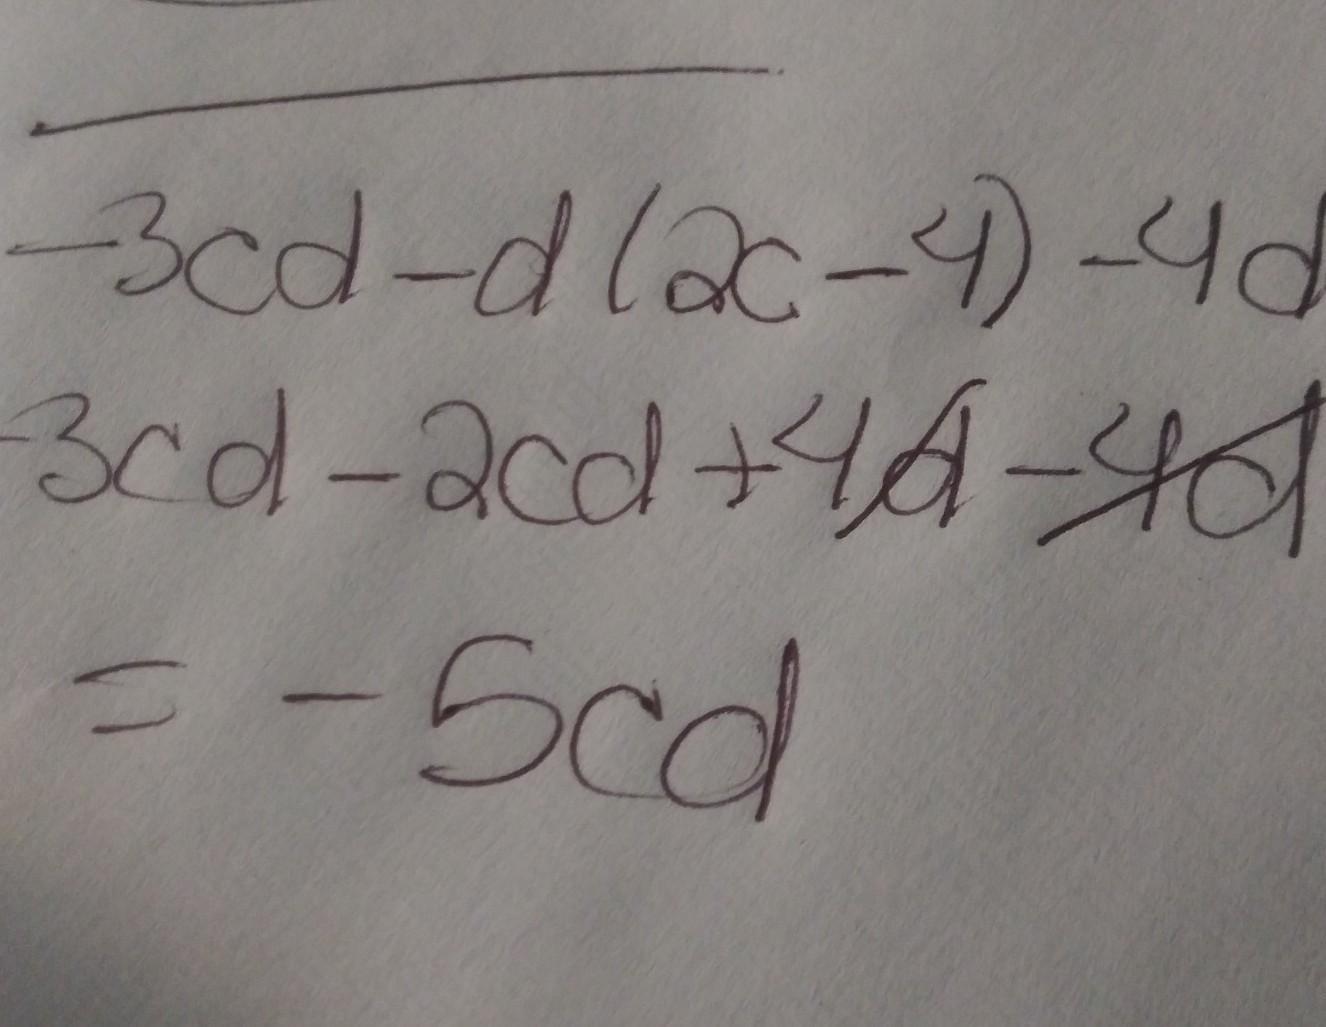 -3cd-d(2c-4)-4d
-3cd-2cd+4d-4d
= -5cd